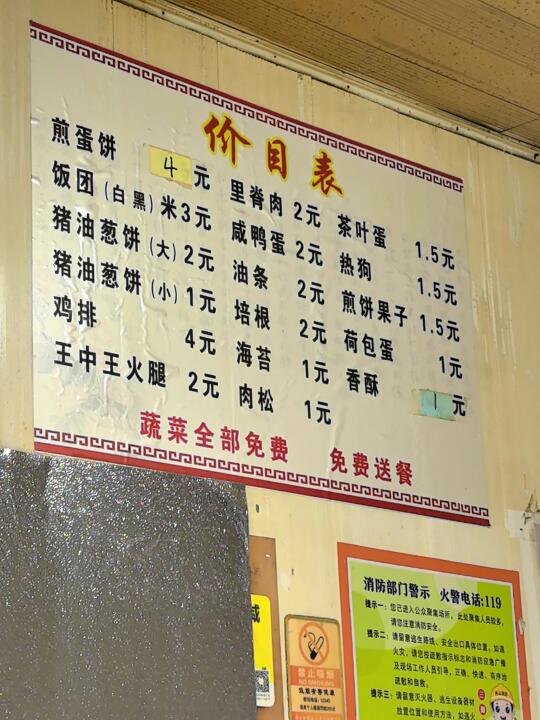 价目表
煎蛋饼 4元 里脊肉 2元 茶叶蛋 1.5元
饭团(白黑)米3元 咸鸭蛋 2元 热狗 1.5元
猪油葱饼(大) 2元 油条 2元 煎饼果子 1.5元
猪油葱饼(小) 1元 培根 2元 荷包蛋 1元
鸡排 4元 海苔 1元 香酥 1元
王中王火腿 2元 肉松 1元
蔬菜全部免费 免费送餐
禁止吸烟
NO SMOKING
消防部门警示 火警电话:119
提示一:您已进入公众聚集场所,此处聚集人员较多,
请您注意消防安全。
提示二:请留意逃生路线、安全出口具体位置,如遇
火灾,请您按疏散指示标志和消防应急广播
及现场工作人员引导,正确、快速、有序地
疏散和自救。
提示三:请留意灭火器、逃生设备器材
放置位置和使用方法,如遇火